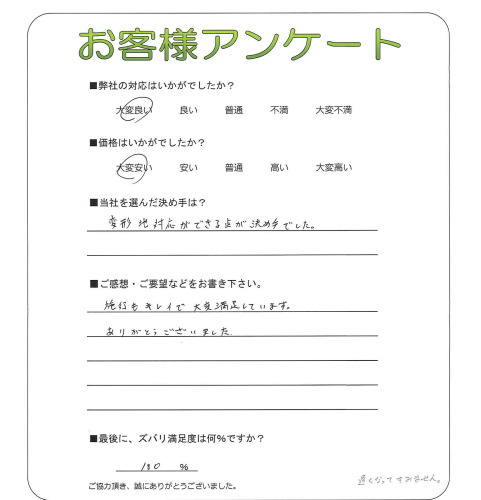 お客様アンケート
■弊社の対応はいかがでしたか？
大変良い 良い 普通 不満 大変不満
■価格はいかがでしたか？
大変安い 安い 普通 高い 大変高い
■当社を選んだ決め手は？
変形地対応ができる点が決め手でした。
■ご感想・ご要望などをお書き下さい。
施行もキレイで大変満足しています。
ありがとうございました
■最後に、ズバリ満足度は何%ですか？
180 %
ご協力頂き、誠にありがとうございました。
遅くなってすみません。